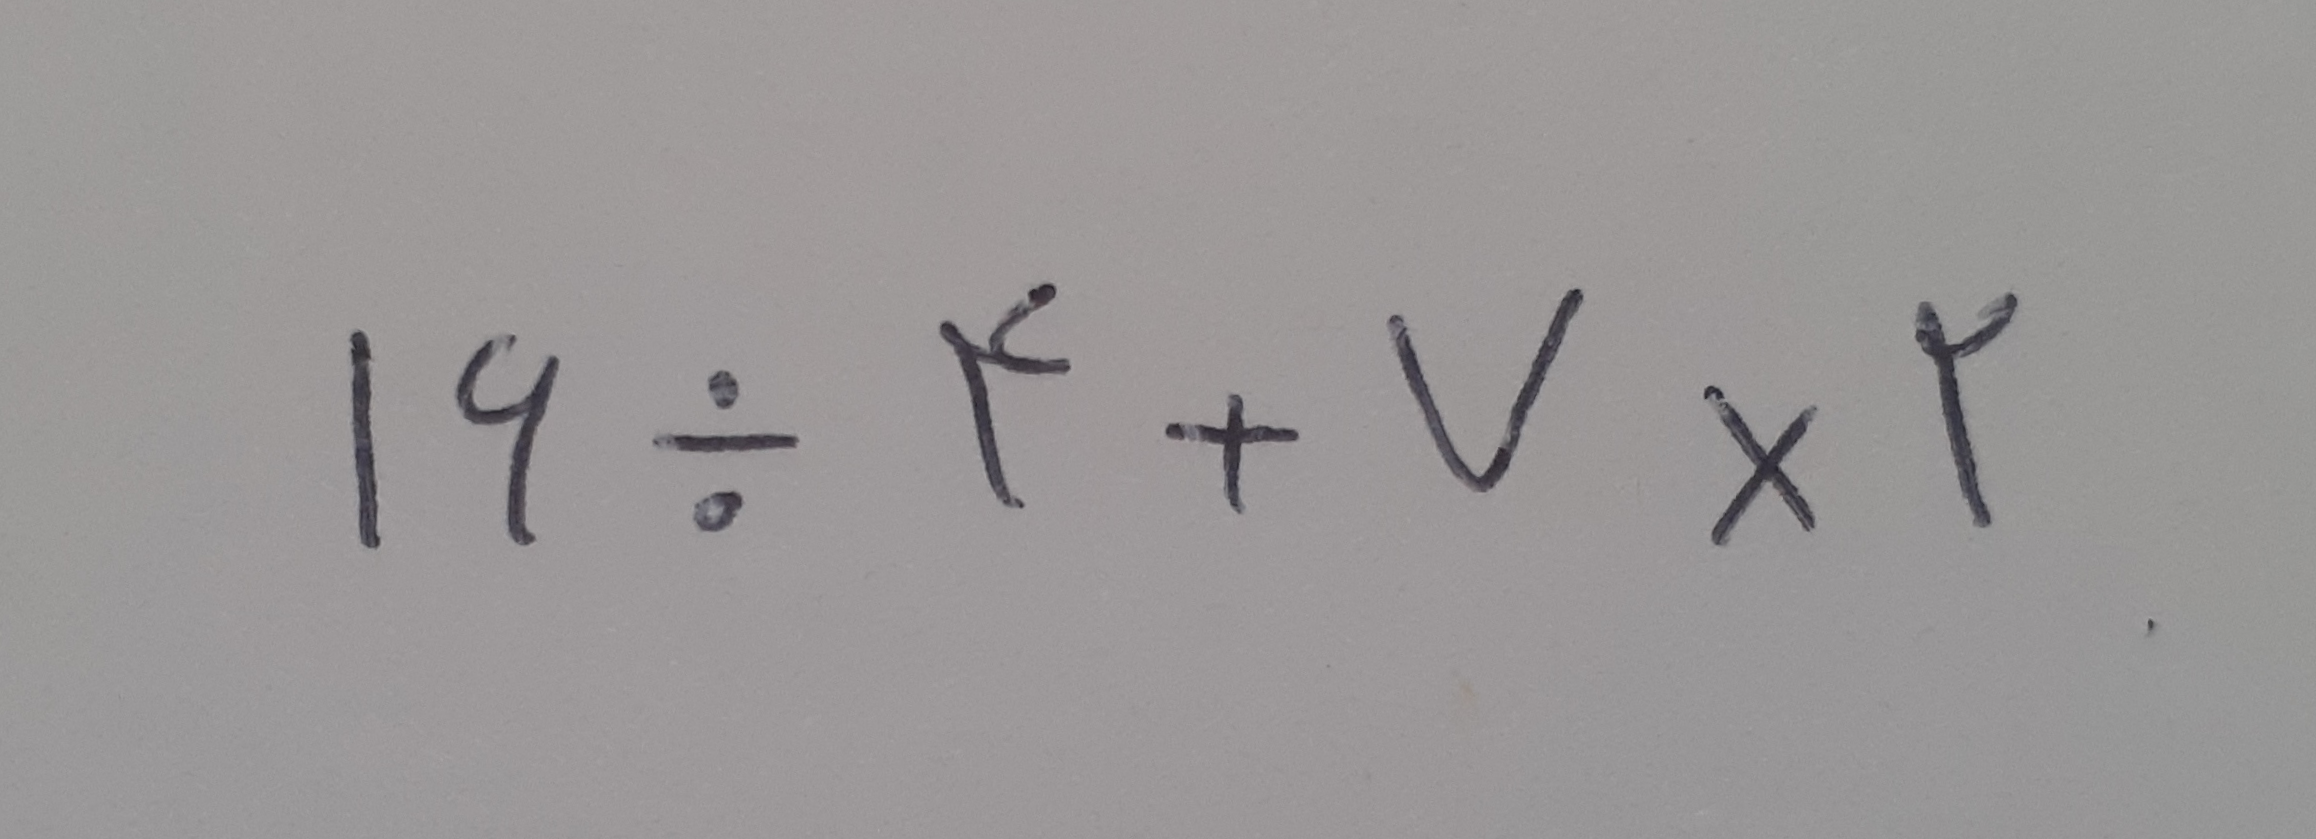 ۱۶ ÷ ۴ + ۷ × ۲